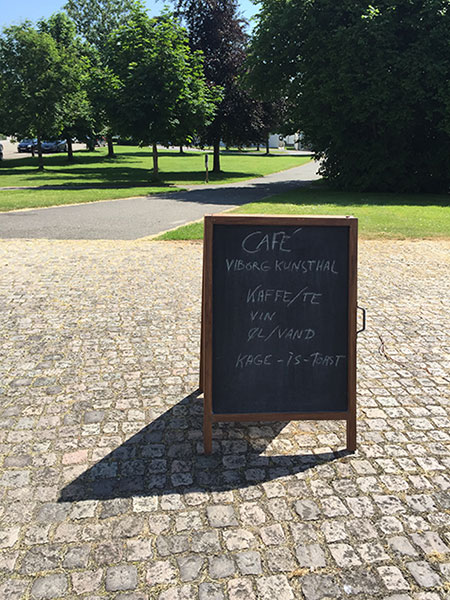 CAFÉ
VIBORG KUNSTHAL
KAFFE/TE
VIN
ØL/VAND
KAGE-IS-TOAST